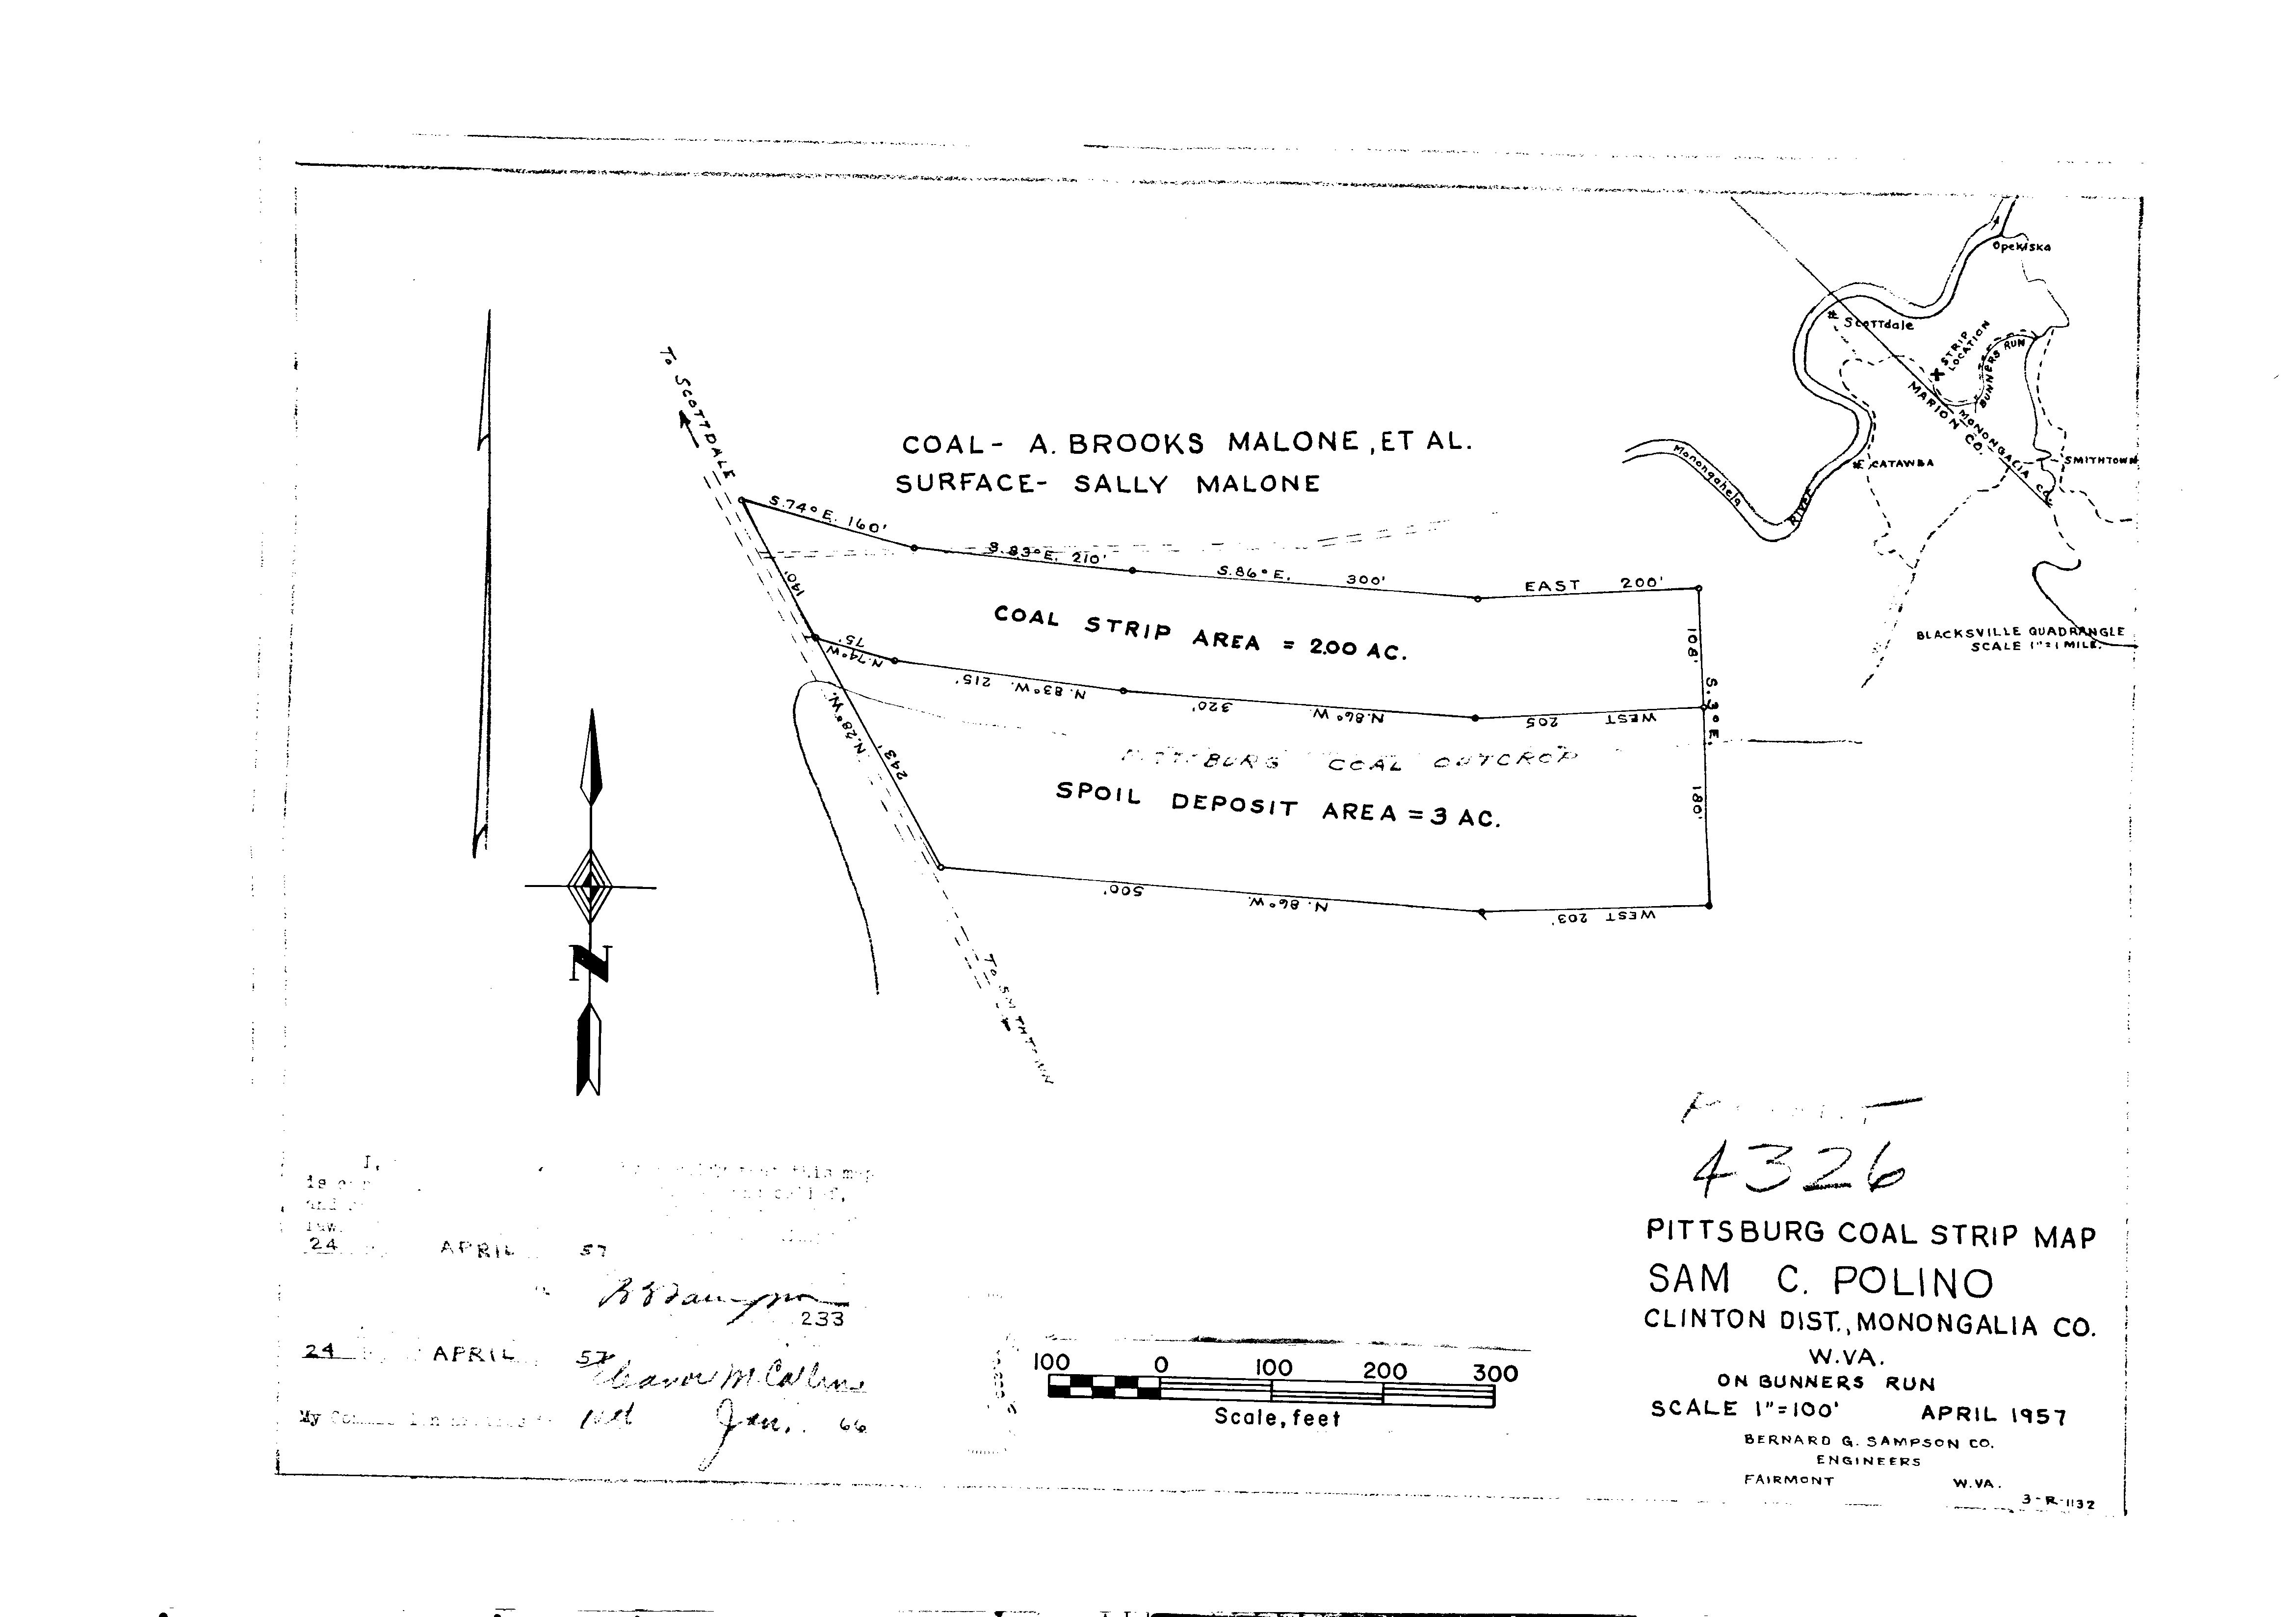 Opekiska
# Scottdale
STRIP
LOCATION
BUNNERS RUN
MARION CO.
MONONGALIA CO.
# CATAWBA
SMITHTOWN
Monongahela
RIVER
BLACKSVILLE QUADRANGLE
SCALE 1"=1 MILE.
TO SCOTTDALE
COAL- A. BROOKS MALONE, ET AL.
SURFACE- SALLY MALONE
S.74° E. 160'
S.83° E. 210'
S.86° E. 300'
EAST 200'
140'
COAL STRIP AREA = 2.00 AC.
108'
N.74° W. 75'
N.83° W. 215'
N.86° W. 320'
WEST 205
S.3° E.
N.28° W. 243'
PITTSBURG COAL OUTCROP
SPOIL DEPOSIT AREA = 3 AC.
180'
N.86° W. 500'
WEST 203'
TO SMITHTOWN
N
4326
PITTSBURG COAL STRIP MAP
SAM C. POLINO
CLINTON DIST., MONONGALIA CO.
W.VA.
ON BUNNERS RUN
SCALE 1"=100' APRIL 1957
BERNARD G. SAMPSON CO.
ENGINEERS
FAIRMONT W.VA.
3-R-1132
I,
this map
is
and
law.
24 APRIL 57
233
24 APRIL 57
Eleanor McCollins
My
Jan. 66
100 0 100 200 300
Scale, feet